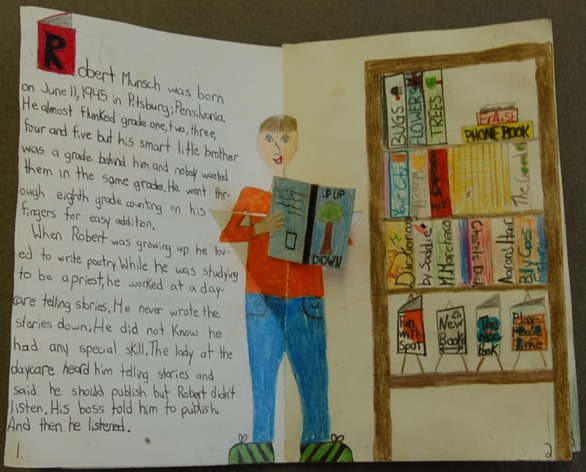 Robert Munsch was born
on June 11, 1945 in Pitsburg, Pensilvania.
He almost flunked grade one, two, three,
four and five but his smart little brother
was a grade behind him and nobody wanted
them in the same grade. He went thr-
ough eighth grade counting on his
fingers for easy addition.
When Robert was growing up he lov-
ed to write poetry. While he was studying
to be a priest, he worked at a day-
care telling stories. He never wrote the
stories down. He did not know he
had any special skill. The lady at the
daycare heard him telling stories and
said he should publish but Robert didn't
listen. His boss told him to publish.
And then he listened.
1.
UP UP
DOWN
BUGS
FLOWERS
TREES
ERASE
PHONE BOOK
Your City
The
Dictionary
by Saddie
M. Marchenko
Aaron's Hair
Billy Goes
Fun
with
Spot
New
Book
The
New
Book
Play-
Time
2